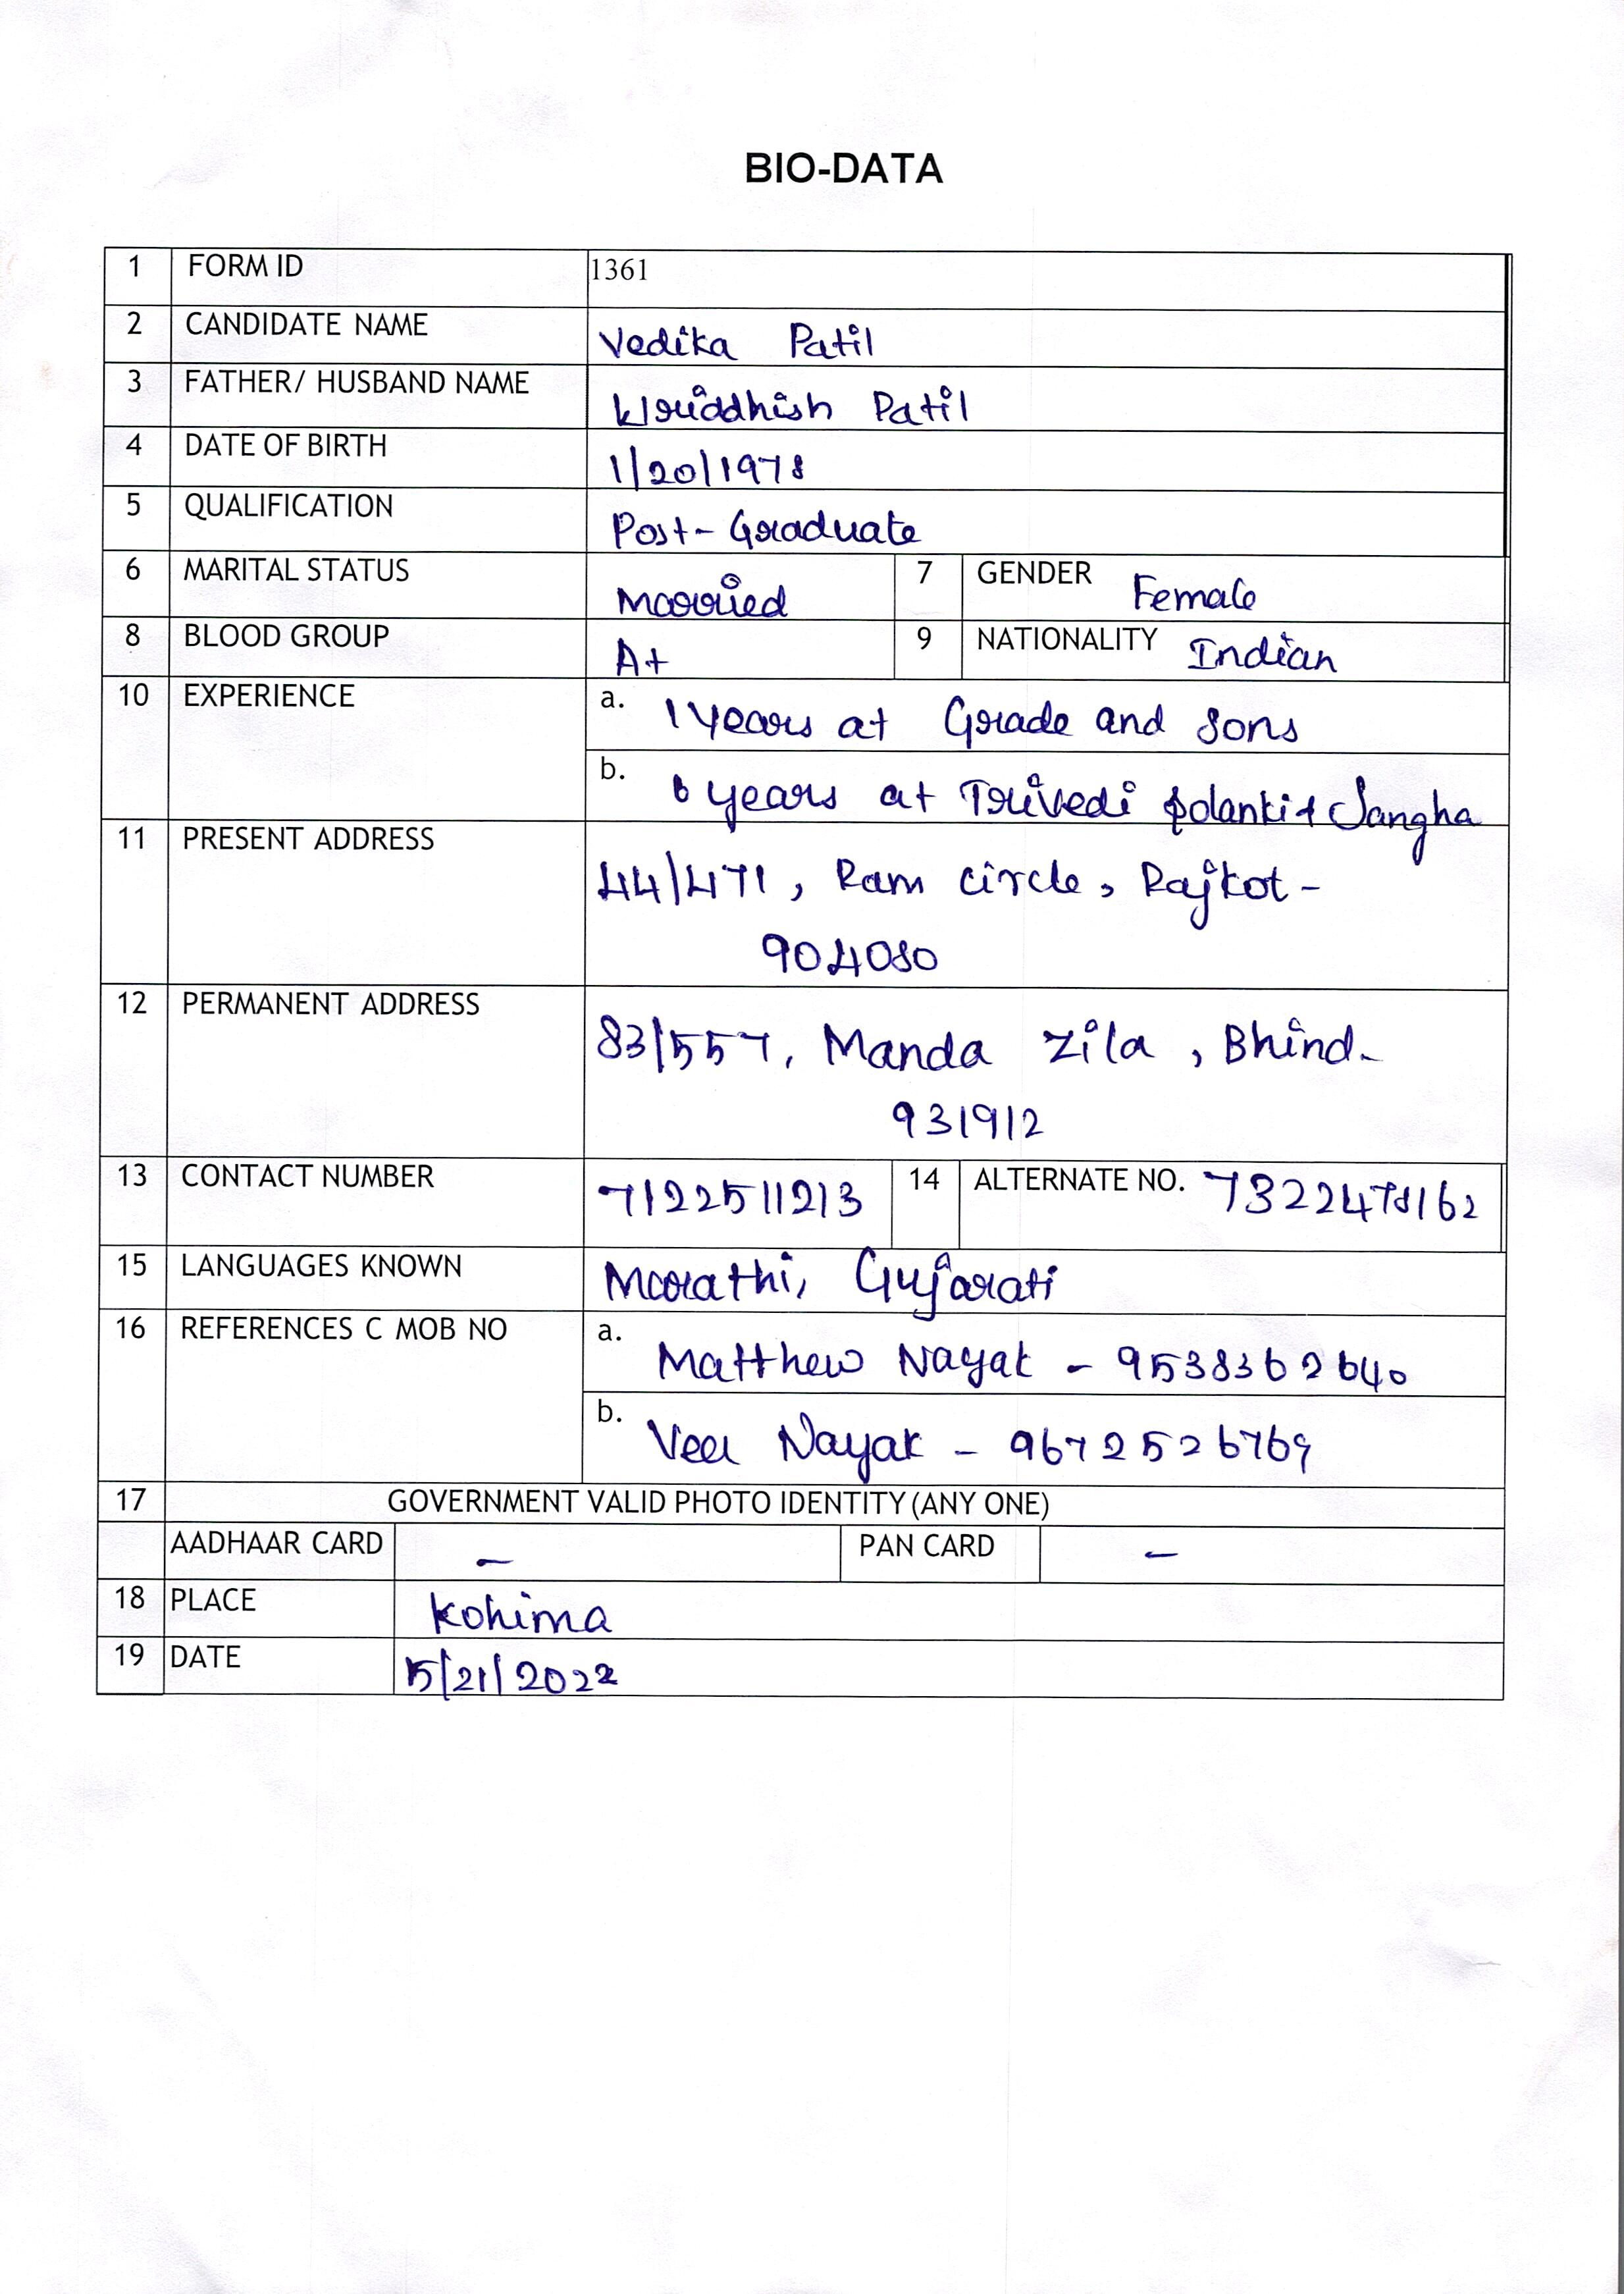 BIO-DATA
1 FORM ID 1361
2 CANDIDATE NAME Vedika Patil
3 FATHER/ HUSBAND NAME Wriddhish Patil
4 DATE OF BIRTH 1/20/1978
5 QUALIFICATION Post-Graduate
6 MARITAL STATUS Married 7 GENDER Female
8 BLOOD GROUP A+ 9 NATIONALITY Indian
10 EXPERIENCE a. 1 years at Grade and Sons
b. 6 years at Trivedi Solanki & Sangha
11 PRESENT ADDRESS 44/471, Ram circle, Rajkot-
904080
12 PERMANENT ADDRESS 83/557, Manda Zila, Bhind-
931912
13 CONTACT NUMBER 7122511213 14 ALTERNATE NO. 7322478162
15 LANGUAGES KNOWN Marathi, Gujarati
16 REFERENCES C MOB NO a. Matthew Nayak - 9538362640
b. Veer Nayak - 9672526769
17 GOVERNMENT VALID PHOTO IDENTITY (ANY ONE)
AADHAAR CARD - PAN CARD -
18 PLACE Kohima
19 DATE 5/21/2022